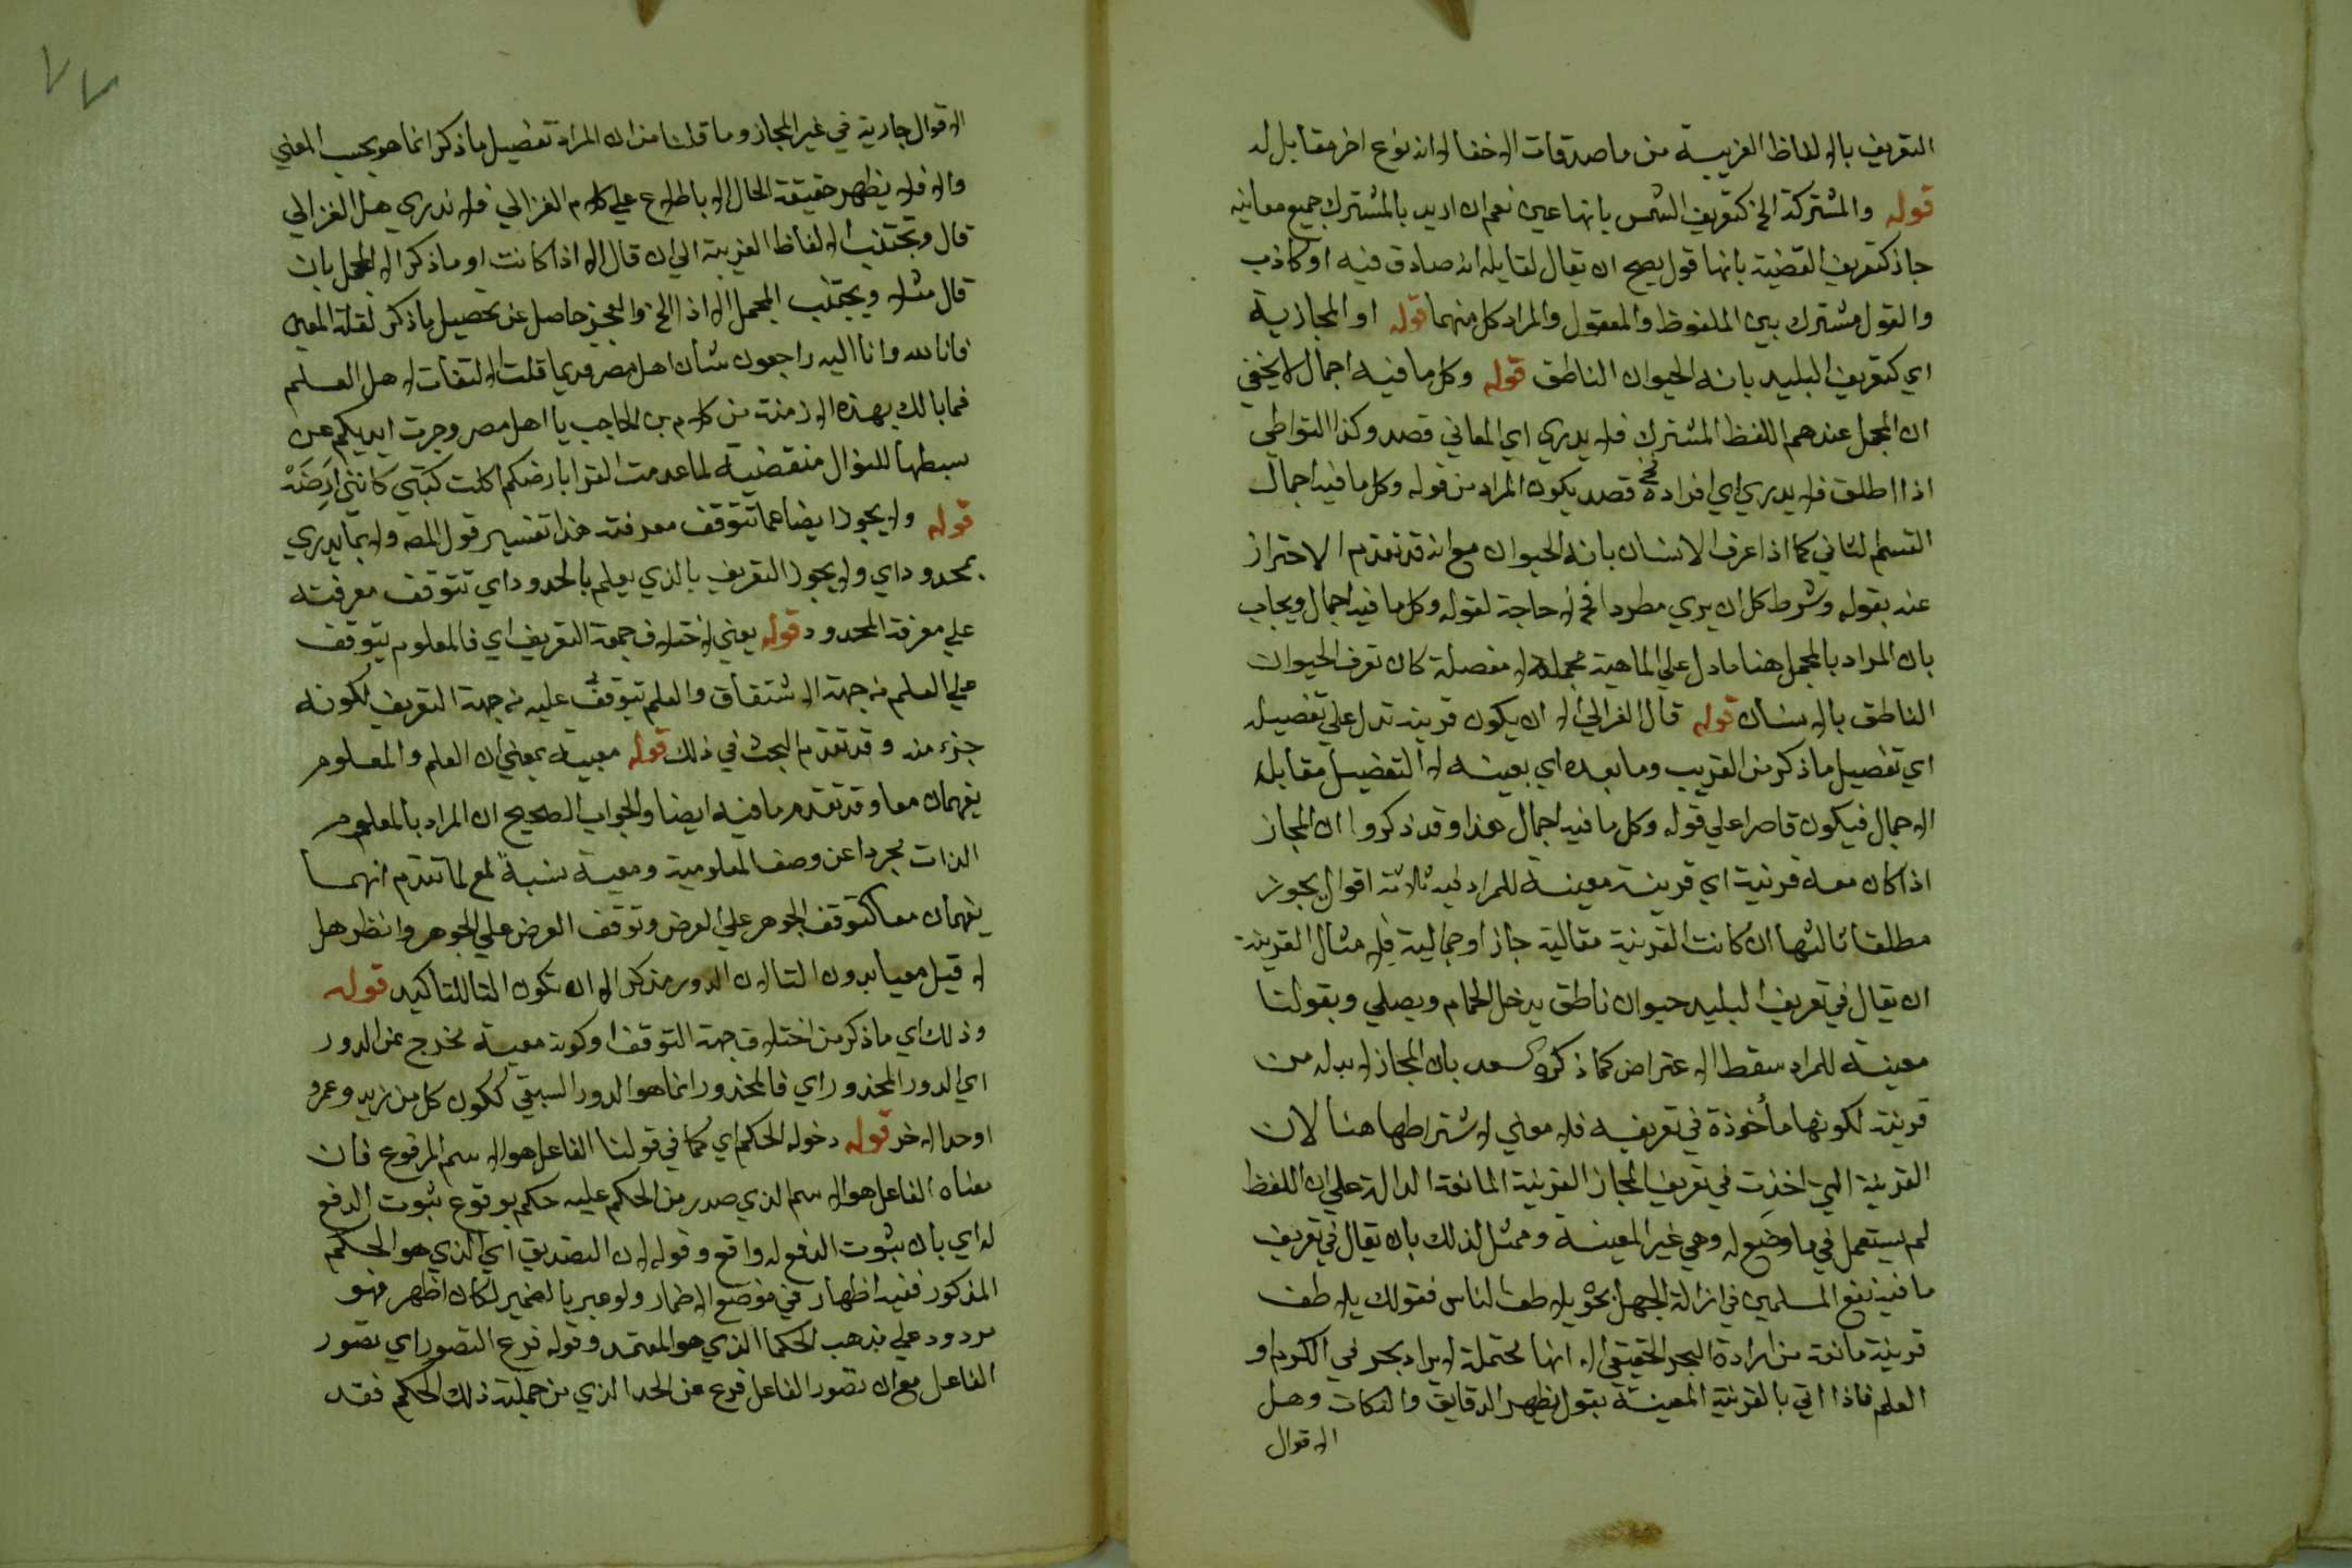 التعريف بالالفاظ الغريبة من ماصدقات الاخفا لا انه نوع اخر مقابل له
قوله والمشتركة الخ كتعريف الشمس بانها عين نعم ان اريد بالمشترك جميع معانيه
جاز كتعريف القضية بانها قول يصح ان يقال لقايله انه صادق فيه او كاذب
والقول مشترك بين الملفوظ والمعقول والمراد كل منهما قوله او المجازية
اي كتعريف البليد بانه الحيوان الناطق قوله وكل ما فيه اجمال لا يخفي
ان المجمل عندهم اللفظ المشترك فلا يدري اي المعاني قصد وكذا التواطي
اذا اطلق فلا يدري اي افراده قصد يكون المراد من قوله وكل ما فيه اجمال
القسم الثاني كما اذا عرف الانسان بانه الحيوان مع انه قد تقدم الاحتراز
عنه بقوله وشرط كل ان يري مطردا فح لا حاجة لقوله وكل ما فيه اجمال ويجاب
بان المراد بالمجمل هنا ما دل علي الماهية مجملة لا مفصلة كان تعرف الحيوان
الناطق بالانسان قوله قال الغزالي الا ان يكون قرينة تدل علي تفصيله
اي تفصيل ما ذكر من الغريب وما بعده اي بعينه لا التفصيل مقابله
الاجمال فيكون قاصرا علي قوله وكل ما فيه اجمال هذا وقد ذكروا ان المجاز
اذا كان معه قرينة اي قرينة معينة للمراد فيه ثلاثة اقوال يجوز
مطلقا ثالثها ان كانت القرينة مقالية جاز او حالية فلا مثال القرينة
ان يقال في تعريف البليد حيوان ناطق يدخل الحمام ويصلي وبقولنا
معينة للمراد سقط الاعتراض كما ذكره السعد بان المجاز لابد له من
قرينة لكونها مأخوذة في تعريفه فلا معني لاشتراطها هنا لان
القرينة التي اخذت في تعريف المجاز القرينة المانعة الدالة علي ان اللفظ
لم يستعمل في ما وضع له وهي غير المعينة ومثل لذلك بان يقال في تعريف
ما فيه نفع المسلمين في ازالة الجهل بحر يلاطف الناس فقولك يلاطف
قرينة مانعة من ارادة البحر الحقيقي الا انها محتملة لا يراد بحر في الكرم او
العلم فاذا اتي بالقرينة المعينة بقول يظهر الدقايق والنكات وهل
الاقوال
٧٧
الاقوال جارية في غير المجاز وما قلنا من ان المراد تفصيل ما ذكر انما هو بحسب المعني
والا فلا يظهر حقيقة الحال الا باطلاع علي كلام الغزالي فلا ندري هل الغزالي
قال وتجتنب الالفاظ الغريبة الي ان قال الا اذا كانت او ما ذكر الا المجمل بان
قال مثلا ويجتنب المجمل الا اذا الخ والعجز حاصل عن تحصيل ما ذكر لقلة المعين
فانا لله وانا اليه راجعون شأن اهل مصر قديما قلت الالتفات لاهل العلم
فما بالك بهذه الازمنة من كلام بن الحاجب يا اهل مصر وجرت ايديكم عن
بسطها للنوال منقضية لما عدمت القرا بارضكم اكلت كتبي كانني ارضة
قوله ولا يجوز ايضا مما تتوقف معرفته هذا تفسير قول المصه ولا بما يدري
بمحدود اي ولا يجوز التعريف بالذي يعلم بالمحدود اي تتوقف معرفته
علي معرفة المحدود قوله يعني لاختلاف جهة التعريف اي فالمعلوم يتوقف
علي العلم من جهة الاشتقاق والعلم يتوقف عليه من جهة التعريف لكونه
جزء منه وقد تقدم البحث في ذلك قوله معية بمعني ان العلم والمعلوم
يفهمان معا وقد تقدم ما فيه ايضا والجواب الصحيح ان المراد بالمعلوم
الذات مجردا عن وصف المعلومية ومعية نسبة لمع لما تقدم انهما
يفهمان معا كتوقف الجوهر علي العرض وتوقف العرض علي الجوهر وانظر هل
لا قيل معيا بدون التا لان الدور مذكر الا ان تكون التا للتاكيد قوله
وذلك اي ما ذكر من اختلاف جهة التوقف او كونه معية مخرج عن الدور
اي الدور المحذور اي فالمحذور انما هو الدور السبقي ككون كل من زيد وعمرو
اوجد الاخر قوله دخول الحكم اي كما في قولنا الفاعل هو الاسم المرفوع فان
معناه الفاعل هو الاسم الذي صدر من الحكم عليه حكم بوقوع ثبوت الرفع
له اي بان ثبوت الرفع له واقع وقوله لان التصديق اي الذي هو الحكم
المذكور ففيه اظهار في موضع الاضمار ولو عبر بالضمير لكان اظهر فهو
مردود علي مذهب الحكما الذي هو المعتمد وقوله فرع التصور اي تصور
الفاعل مع ان تصور الفاعل فرع عن الحد الذي من جملته ذلك الحكم فقد